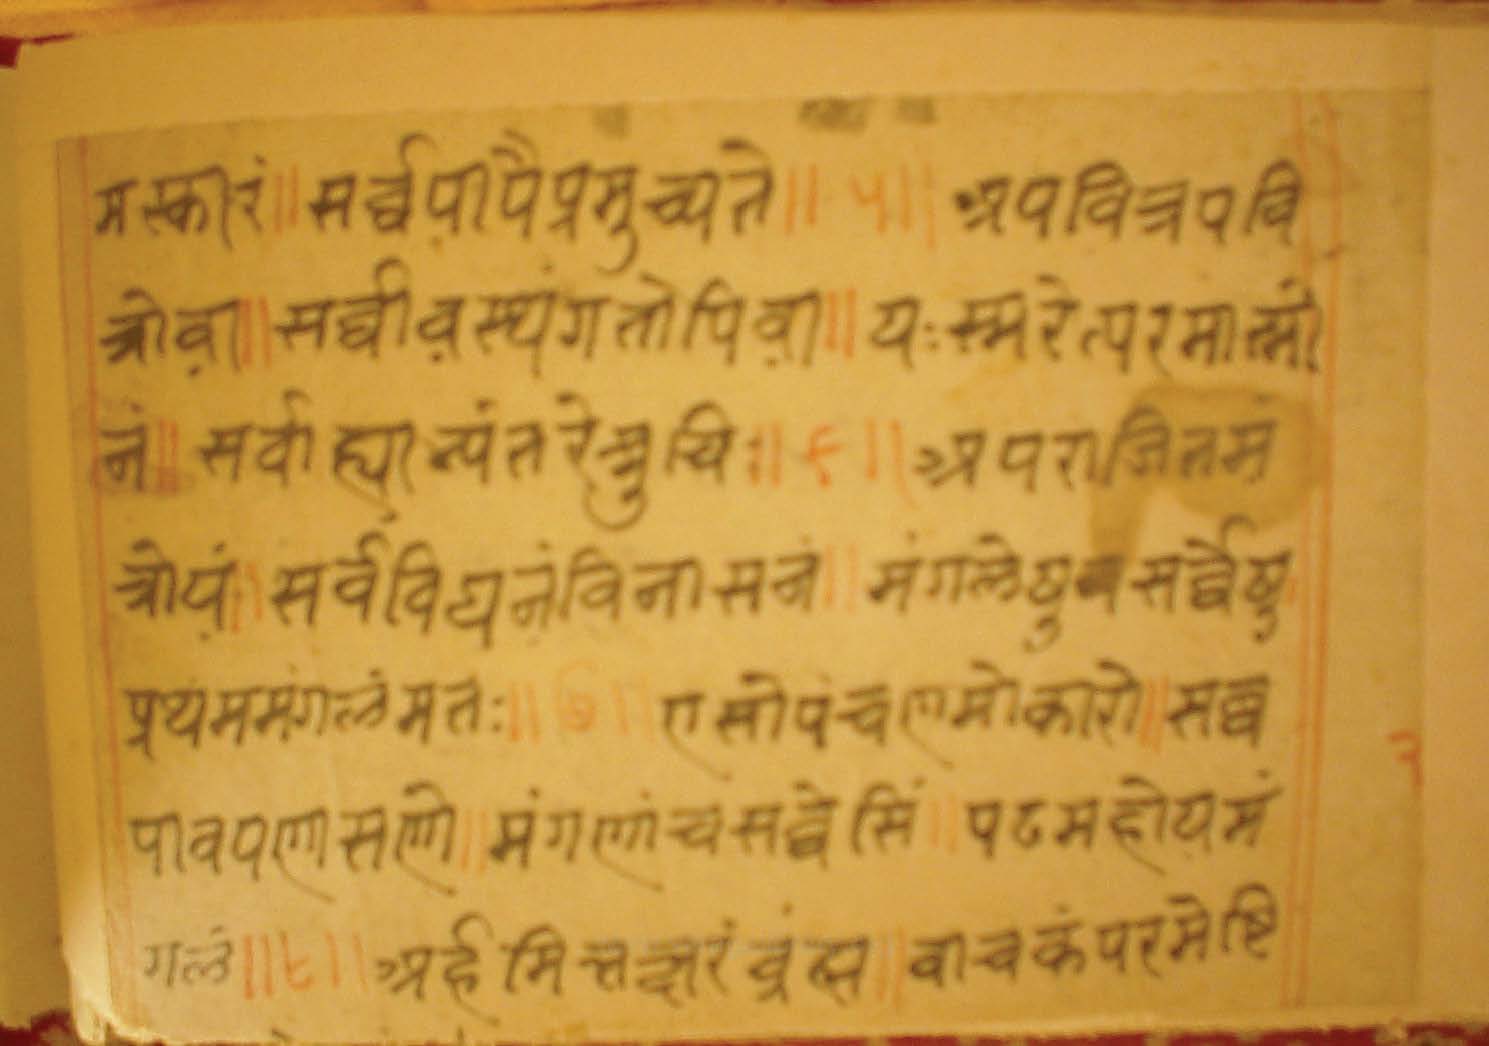 मस्कारं॥ सर्व्वपापैप्रमुच्यते॥ ५॥ अपवित्रपवि
त्रोवा॥ सर्व्वावस्थंगतोपिवा॥ यःस्मरेत्परमात्मा
नं॥ सर्वाह्याभ्यंतरेश्रुचिः॥ ६॥ अपराजितमं
त्रोयं॥ सर्वविघ्यनंविनासनं॥ मंगलेषुचसर्व्वेषु
प्रथममंगलंमतः॥ ७॥ एसोपंचणमोकारो॥ सव्व
पावपणासणो॥ मंगणांचसव्वेसिं॥ पढमहोयमं
गलं॥ ८॥ अर्हमित्तक्षरंव्रंह्म॥ वाचकंपरमेष्टि
२